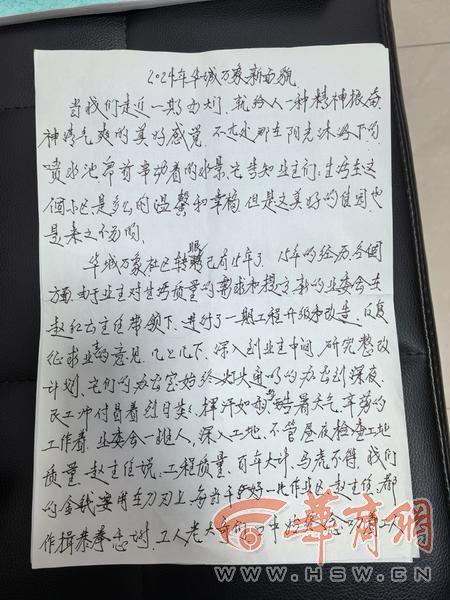 2024年华城万象新面貌
当我们走近一期大门,就给人一种精神振奋
神清气爽的美好感觉,不远处那在阳光沐浴下的
喷水池带着舞动着的水景,它告知业主们:生活在这
个小区是多么的温馨和幸福,但是这美好的佳园也
是来之不易的。
华城万象社区转眼已有15年了,15年的经历各个
方面,由于业主对生活质量的需求和提高,新的业委会在
赵红云主任带领下,进行了一期工程升级和改造,反复
征求业主的意见,几上几下,深入到业主中间,研究整改
计划,它们的办公室始终灯火通明的办公到深夜。
民工师付冒着烈日炎炎,挥汗如雨的酷暑天气,辛劳的
工作着,业委会一班人,深入工地,不管昼夜检查工地
质量,赵主任说:工程质量,百年大计,马虎不得,我们
的金钱要用在刀刃上,每当干好一片作业区赵主任,都
作揖恭拳,工人老大哥们
华商网
WWW.HSW.CN